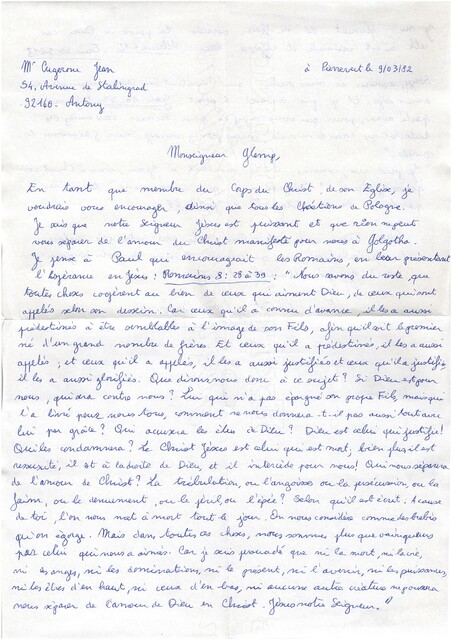 Mr Cugerone Jean
à Pierrevert le 9/03/82
54, Avenue de Stalingrad
92160 - Antony
Monseigneur Glemp,
En tant que membre du Corps du Christ, de son Eglise, je
voudrais vous encourager, ainsi que tous les Chrétiens de Pologne.
Je sais que notre Seigneur Jésus est puissant et que rien ne peut
vous séparer de l'amour du Christ manifesté pour nous à Golgotha.
Je pense à Paul qui encourageait les Romains, en leur présentant
l'espérance en Jésus : Romains 8 : 28 à 39 : " Nous savons du reste, que
toutes choses coopèrent au bien de ceux qui aiment Dieu, de ceux qui sont
appelés selon son dessein. Car ceux qu'il a connu d'avance, il les a aussi
prédestinés à être semblables à l'image de son Fils, afin qu'il soit le premier
né d'un grand nombre de frères Et ceux qu'il a prédestinés, il les a aussi
appelés, et ceux qu'il a appelés, il les a aussi justifiés et ceux qu'il a justifiés
il les a aussi glorifiés. Que dirons nous donc à ce sujet ? Si Dieu est pour
nous, qui sera contre nous ? Lui qui n'a pas épargné son propre Fils, mais qui
l'a livré pour nous tous, comment ne nous donnera-t-il pas aussi tout avec
lui par grâce ? Qui accusera les élus de Dieu ? Dieu est celui qui justifie !
Qui les condamnera ? Le Christ Jésus est celui qui est mort, bien plus il est
ressuscité, il est à la droite de Dieu, et il intercède pour nous ! Qui nous séparera
de l'amour de Christ ? La tribulation, ou l'angoisse ou la persécution, ou la
faim, ou le dénuement, ou le péril, ou l'épée ? Selon qu'il est écrit. A cause
de toi, l'on nous met à mort tout le jour. On nous considère comme des brebis
qu'on égorge. Mais dans toutes ces choses, nous sommes plus que vainqueurs
par celui qui nous a aimés. Car je suis persuadé que ni la mort, ni la vie,
ni les anges, ni les dominations, ni le présent, ni l'avenir, ni les puissances,
ni les êtres d'en haut, ni ceux d'en bas, ni aucune autre créature ne pourra
nous séparer de l'amour de Dieu en Christ. Jésus notre Seigneur. "